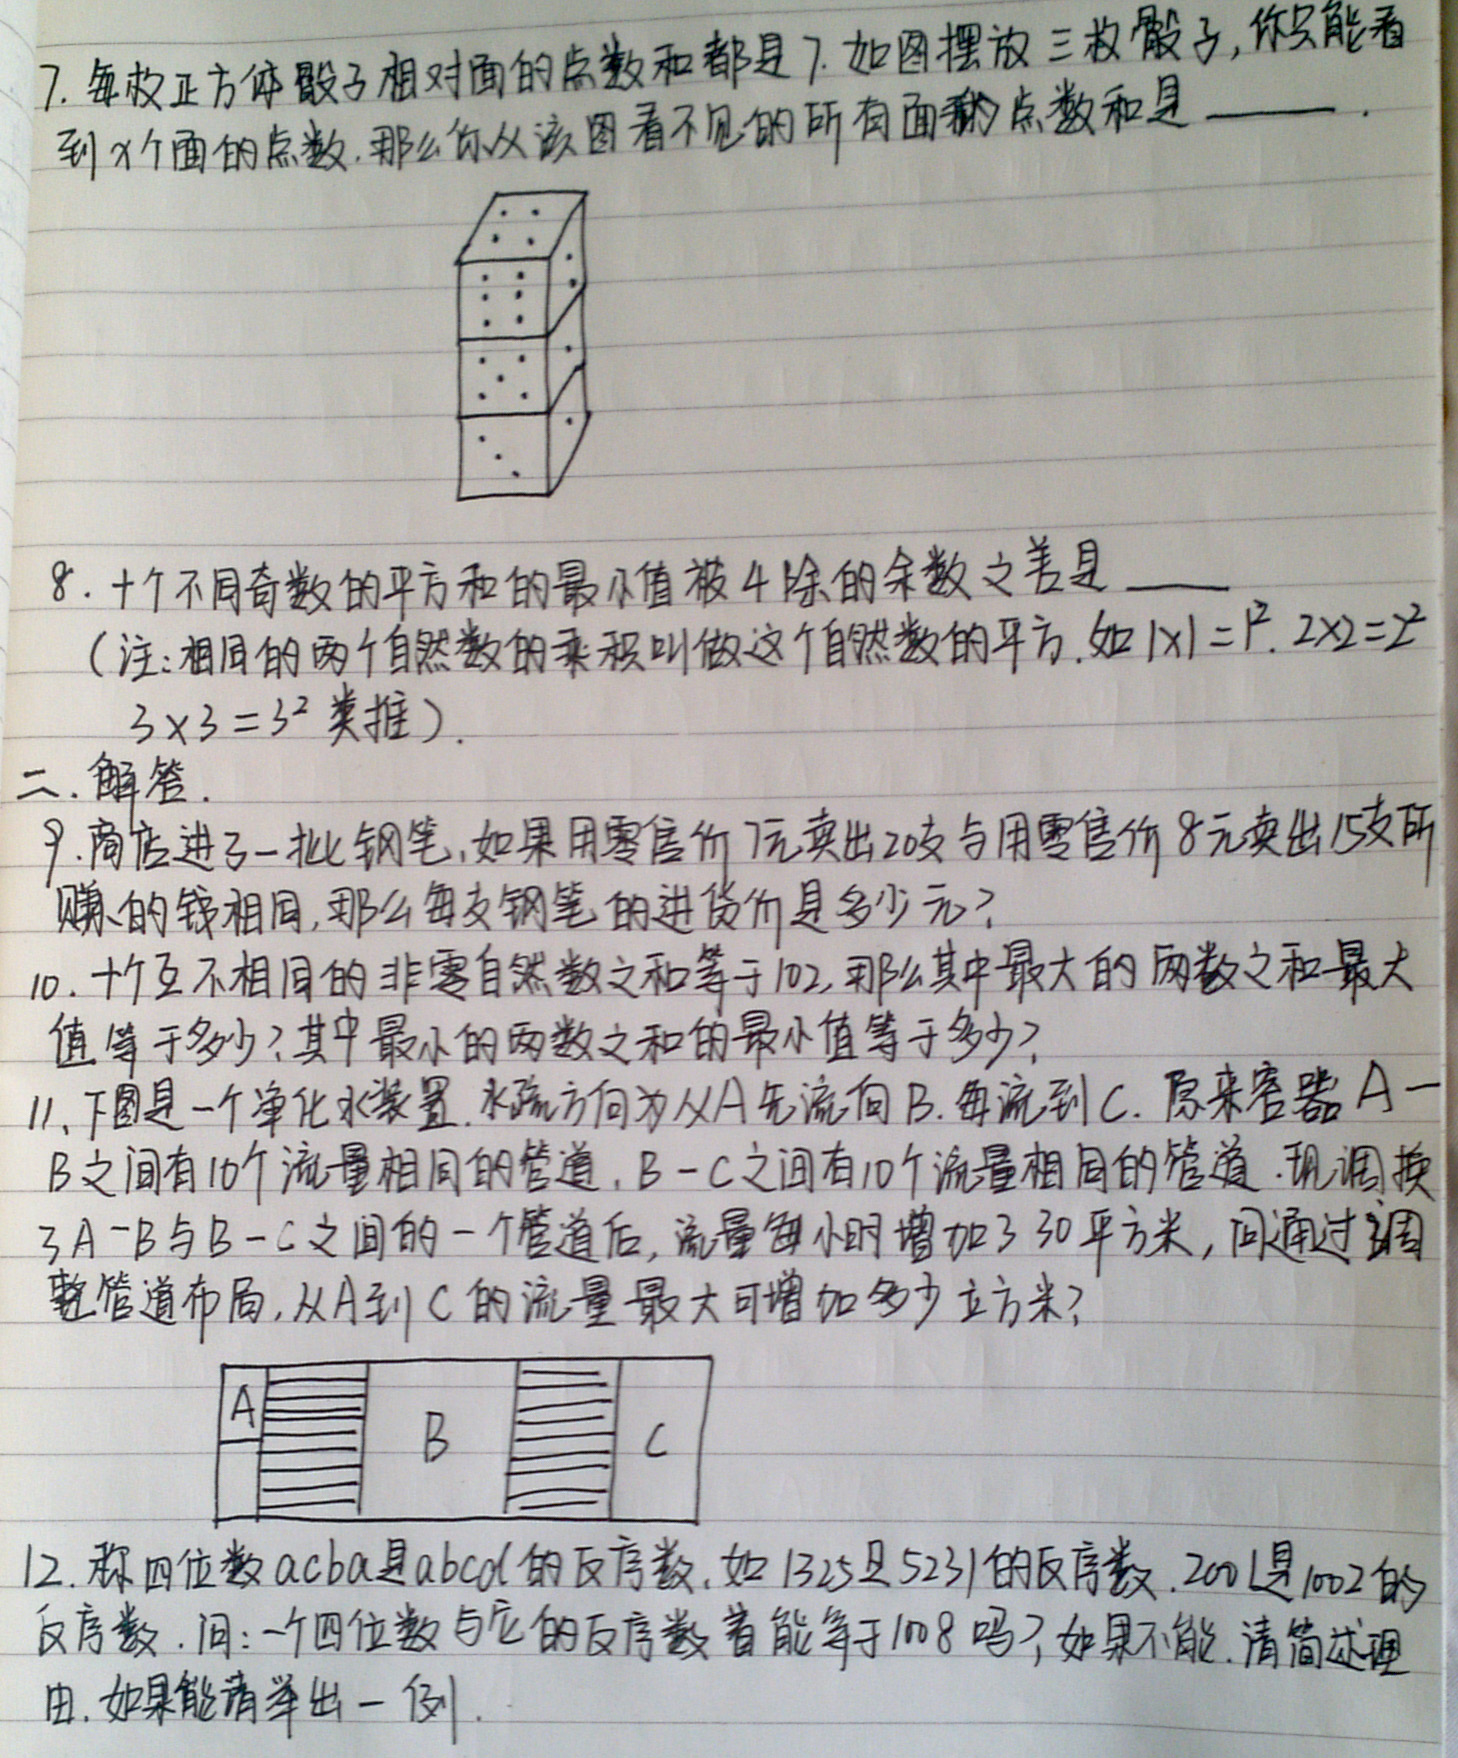 7. 每枚正方体骰子相对面的点数和都是7. 如图摆放三枚骰子,你只能看
到7个面的点数.那么你从该图看不见的所有面的点数和是 ______ .
8. 十个不同奇数的平方和的最小值被4除的余数之差是 ____
(注:相同的两个自然数的乘积叫做这个自然数的平方.如1×1=1². 2×2=2²
3×3=3² 类推).
二. 解答.
9. 商店进了一批钢笔,如果用零售价7元卖出20支与用零售价8元卖出15支所
赚的钱相同,那么每支钢笔的进货价是多少元?
10. 十个互不相同的非零自然数之和等于102,那么其中最大的两数之和最大
值等于多少?其中最小的两数之和的最小值等于多少?
11、下图是一个净化水装置.水流方向为从A先流向B.每流到C. 原来容器A一
B之间有10个流量相同的管道,B-C之间有10个流量相同的管道.现调换
了A-B与B-C之间的一个管道后,流量每小时增加了30平方米,问通过调
整管道布局,从A到C的流量最大可增加多少立方米?
A B C
12. 称四位数acba是abcd的反序数.如1325是5231的反序数.2001是1002的
反序数.问:一个四位数与它的反序数差能等于1008吗?如果不能.请简述理
由.如果能请举出一例.